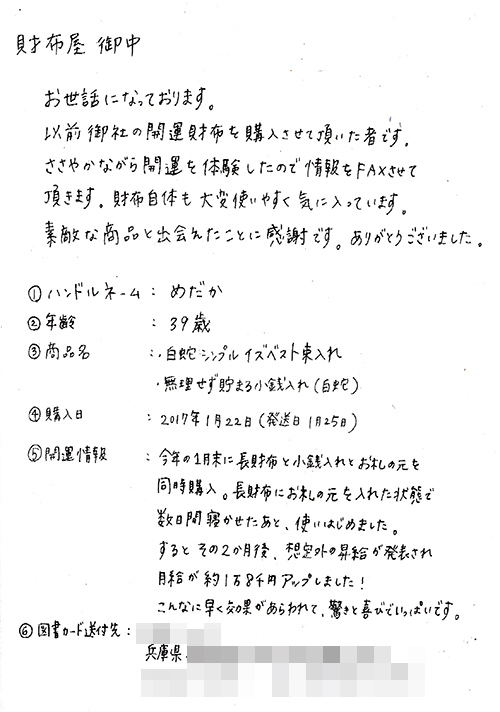 財布屋 御中
お世話になっております。
以前御社の開運財布を購入させて頂いた者です。
ささやかながら開運を体験したので情報をFAXさせて
頂きます。財布自体も大変使いやすく気に入っています。
素敵な商品と出会えたことに感謝です。ありがとうございました。
①ハンドルネーム：めだか
②年齢：39歳
③商品名：・白蛇シンプルイズベスト束入れ
・無理せず貯まる小銭入れ(白蛇)
④購入日：2017年1月22日(発送日1月25日)
⑤開運情報：今年の1月末に長財布と小銭入れとお札の元を
同時購入。長財布にお札の元を入れた状態で
数日間寝かせたあと、使いはじめました。
するとその2か月後、想定外の昇給が発表され
月給が約1万8千円アップしました！
こんなに早く効果があらわれて、驚きと喜びでいっぱいです。
⑥図書カード送付先：
兵庫県